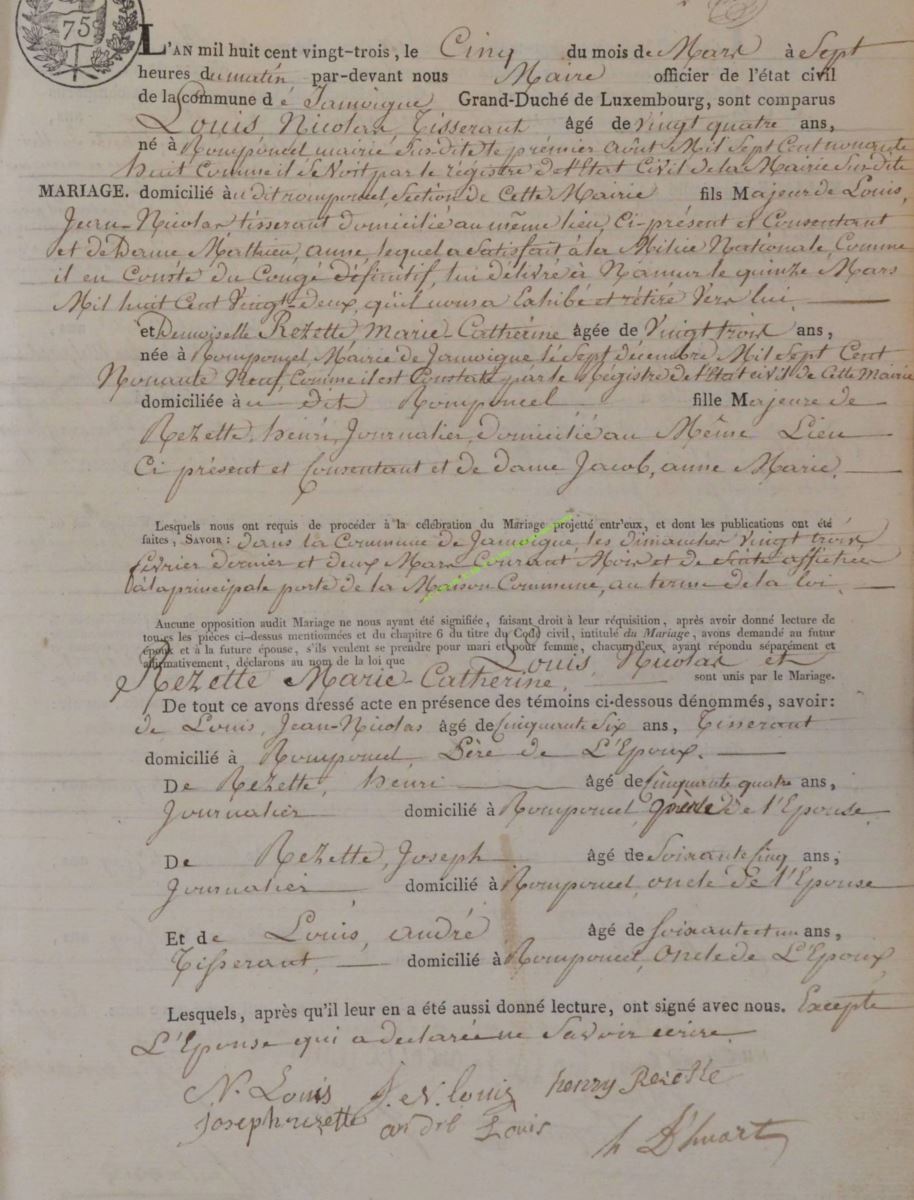 75
L'AN mil huit cent vingt-trois, le Cinq du mois de Mars à Sept
heures du matin par-devant nous Maire officier de l'état civil
de la commune d é Jamoigne Grand-Duché de Luxembourg, sont comparus
Louis Nicolas, Tisserant âgé de Vingt quatre ans,
né à Romponcel mairie Susdite le premier avril Mil Sept Cent nonante
huit Comme il Se Voit par le régistre d'Etat Civil de la Mairie Susdite
MARIAGE. domicilié à u dit romponcel, Section de Cette Mairie fils Majeur de Louis,
Jean-Nicolas tisserant domicilié au même lieu, Ci-présent et Consentant
et de Dame Mathieu, anne lequel a Satisfait à la Milice Nationale, Comme
il en Conste du Congé définitif, lui délivré à Namur le quinze Mars
Mil huit Cent Vingt-deux, qu'il nous a Exhibé et rétiré Vers lui.
et Demoiselle Rezette Marie-Catherine âgée de Vingt trois ans,
née à Romponcel Mairie de Jamoigne le Sept Décembre Mil Sept Cent
Nonante Neuf, Comme il est Constaté par le Régistre de l'Etat civil de Cette Mairie
domiciliée à u dit Romponcel fille Majeure de
Rezette, henri, Journalier, domicilié au Même Lieu
Ci présent et Consentant et de dame Jacob, anne Marie.
Lesquels nous ont requis de procéder à la célébration du Mariage projetté entr'eux, et dont les publications ont été
faites, SAVOIR : dans la Commune de Jamoigne les dimanches Vingt trois
février dernier et deux Mars Courant Mois et de Suite affichées
à la principale porte de la Maison Commune, au terme de la loi.
Aucune opposition audit Mariage ne nous ayant été signifiée, faisant droit à leur réquisition, après avoir donné lecture de
toutes les pièces ci-dessus mentionnées et du chapitre 6 du titre du Code civil, intitulé du Mariage, avons demandé au futur
époux et à la future épouse, s'ils veulent se prendre pour mari et pour femme, chacun d'eux ayant répondu séparément et
affirmativement, déclarons au nom de la loi que Louis, Nicolas et
Rezette Marie-Catherine, sont unis par le Mariage.
De tout ce avons dressé acte en présence des témoins ci-dessous dénommés, savoir:
de Louis, Jean-Nicolas âgé de Cinquante Six ans, Tisserant
domicilié à Romponcel Père de L'Epoux.
De Rezette, henri âgé de Cinquante quatre ans,
Journalier domicilié à Romponcel, père de l'Epouse
De Rezette, Joseph âgé de Soixante Cinq ans;
Journalier domicilié à Romponcel, oncle de l'Epouse
Et de Louis, andré âgé de Soixante et un ans,
Tisserant, domicilié à Romponcel, Oncle de L'Epoux,
Lesquels, après qu'il leur en a été aussi donné lecture, ont signé avec nous. Excepté
L'Epouse qui a declarée ne Savoir écrire.
N. Louis J. N. louis henry Rezette
Joseph rezette andré Louis
h D'huart